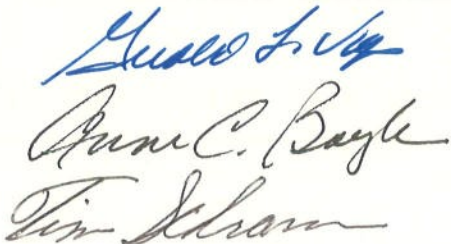 Gerald L. Vap
Anne C. Boyle
Tim Schram